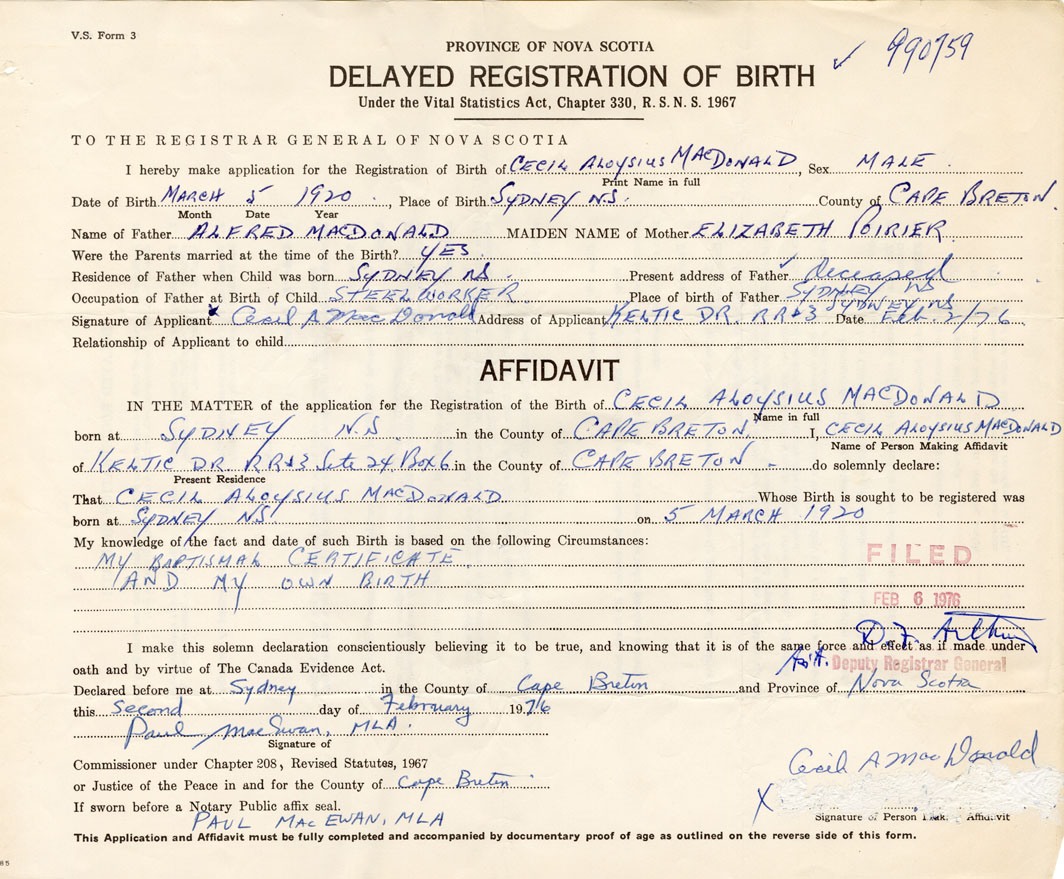 V.S. Form 3
PROVINCE OF NOVA SCOTIA
✓ 990759
DELAYED REGISTRATION OF BIRTH
Under the Vital Statistics Act, Chapter 330, R.S.N.S. 1967
TO THE REGISTRAR GENERAL OF NOVA SCOTIA
I hereby make application for the Registration of Birth of CECIL ALOYSIUS MACDONALD, Sex MALE
Print Name in full
Date of Birth MARCH 5 1920, Place of Birth SYDNEY N.S. County of CAPE BRETON.
Month Date Year
Name of Father ALFRED MACDONALD MAIDEN NAME of Mother ELIZABETH POIRIER
Were the Parents married at the time of the Birth? YES
Residence of Father when Child was born SYDNEY NS. Present address of Father ✓ deceased
Occupation of Father at Birth of Child STEELWORKER Place of birth of Father SYDNEY NS
SYDNEY NS
Signature of Applicant x Cecil A MacDonald Address of Applicant KELTIC DR. RR#3 Date Feb. 2/76
Relationship of Applicant to child
AFFIDAVIT
IN THE MATTER of the application for the Registration of the Birth of CECIL ALOYSIUS MACDONALD
Name in full
born at SYDNEY N.S. in the County of CAPE BRETON I, CECIL ALOYSIUS MACDONALD
Name of Person Making Affidavit
of KELTIC DR. RR#3 Site 24 Box 6 in the County of CAPE BRETON - do solemnly declare:
Present Residence
That CECIL ALOYSIUS MACDONALD Whose Birth is sought to be registered was
born at SYDNEY NS. on 5 MARCH 1920
My knowledge of the fact and date of such Birth is based on the following Circumstances:
MY BAPTISMAL CERTIFICATE
AND MY OWN BIRTH
FILED
FEB 6 1976
I make this solemn declaration conscientiously believing it to be true, and knowing that it is of the same force and effect as if made under
oath and by virtue of The Canada Evidence Act.
D.F. Arthur
Ass't. Deputy Registrar General
Declared before me at Sydney in the County of Cape Breton and Province of Nova Scotia
this Second day of February 1976
Paul MacEwan, MLA.
Signature of
Commissioner under Chapter 208, Revised Statutes, 1967
or Justice of the Peace in and for the County of Cape Breton
If sworn before a Notary Public affix seal.
PAUL MACEWAN, MLA
Cecil A MacDonald
X
Signature of Person Affidavit
This Application and Affidavit must be fully completed and accompanied by documentary proof of age as outlined on the reverse side of this form.
85